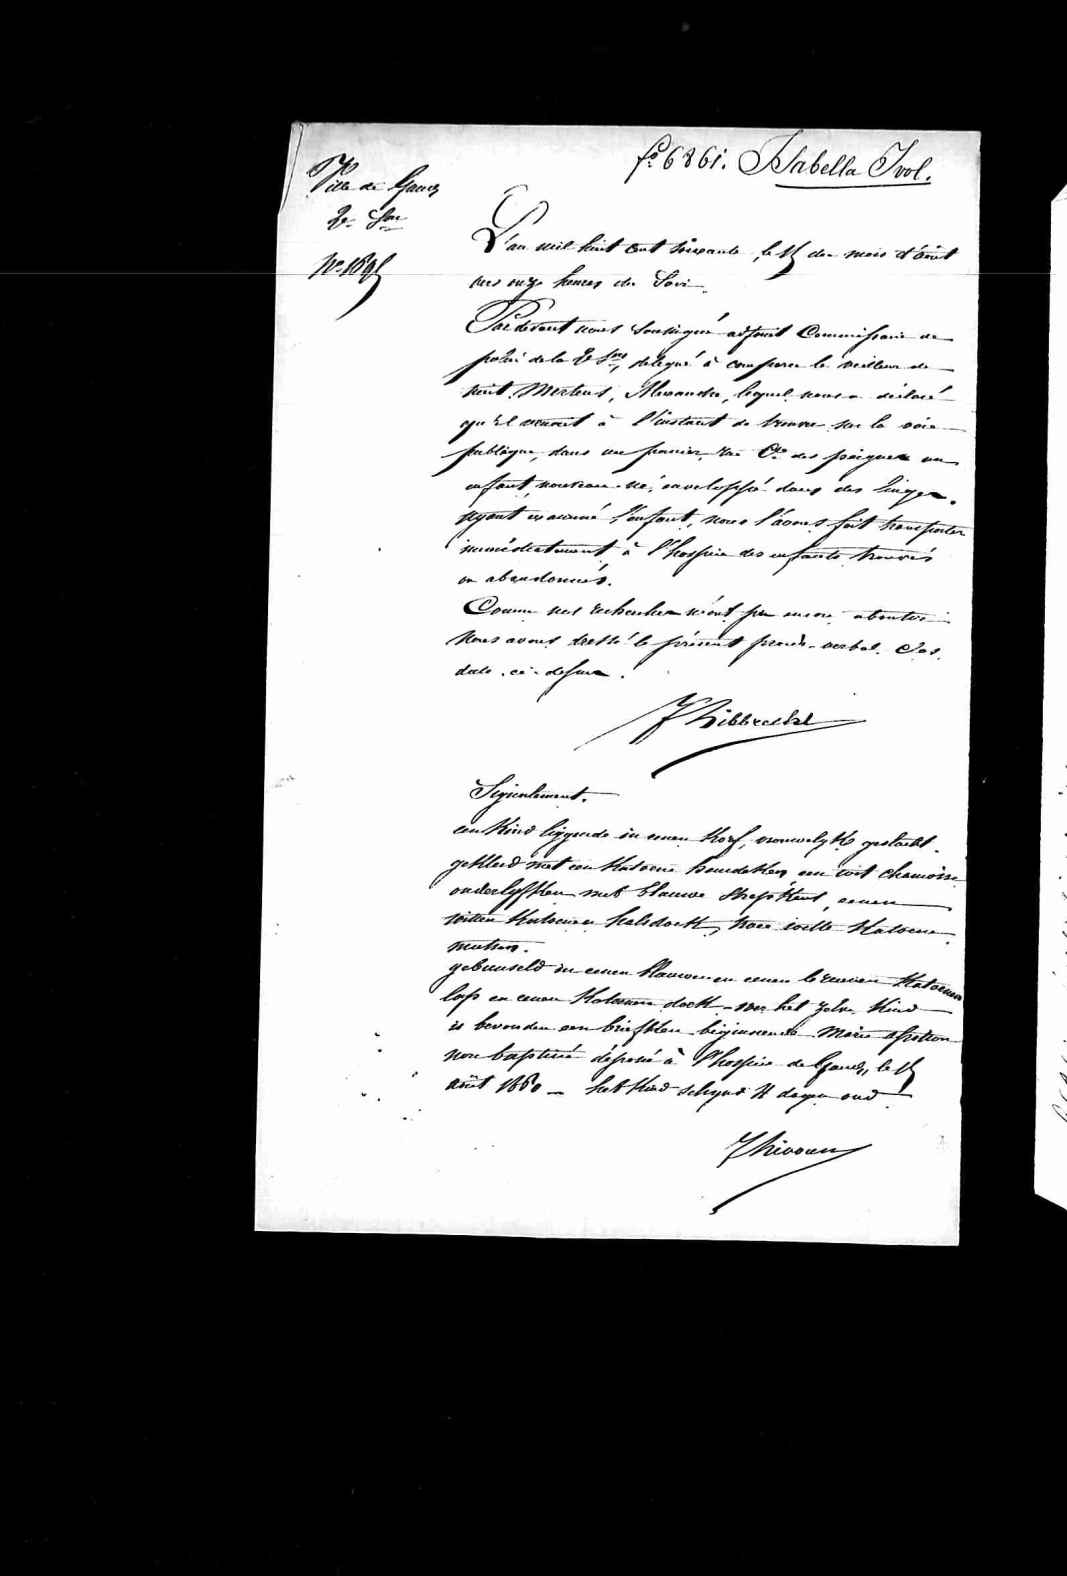 fo. 6861. Isabella Ivol.
Ville de Gand
2e Son
No 1895
L'an mil huit cent soixante, le 15 du mois d'août
vers onze heures du Soir.
Par devant nous Soussigné adjoint Commissaire de
police de la 2e Son, délégué à comparu le veilleur de
nuit Mertens, Alexandre, lequel nous a déclaré
qu'il venait à l'instant de trouver sur la voie
publique, dans un panier rue Cte des peignes un
enfant nouveau-né, enveloppé dans des linges.
Ayant examiné l'enfant, nous l'avons fait transporter
immédiatement à l'hospice des enfants trouvés
ou abandonnés.
Comme nos recherches n'ont pu encore aboutir
Nous avons dressé le présent procès-verbal.
date ci-dessus.
Signalement.
een Kind liggende in eenen Korf, vrouwelyk geslacht
gekleed met een Katoene een wit chamoise
onderlyfken met blauwe streepkens, eenen
witten Katoenen halsdoek, twee witte Katoene
mutsen.
gebunseld in eenen blauwen en eenen bruinen Katoenen
lap en eenen Katoenen doek - over het zelve Kind
is bevonden een briefken beginnende Marie
non baptisé déposé à l'hospice de Gand, le 15
août 1860 - het Kind schynd 4 dagen oud